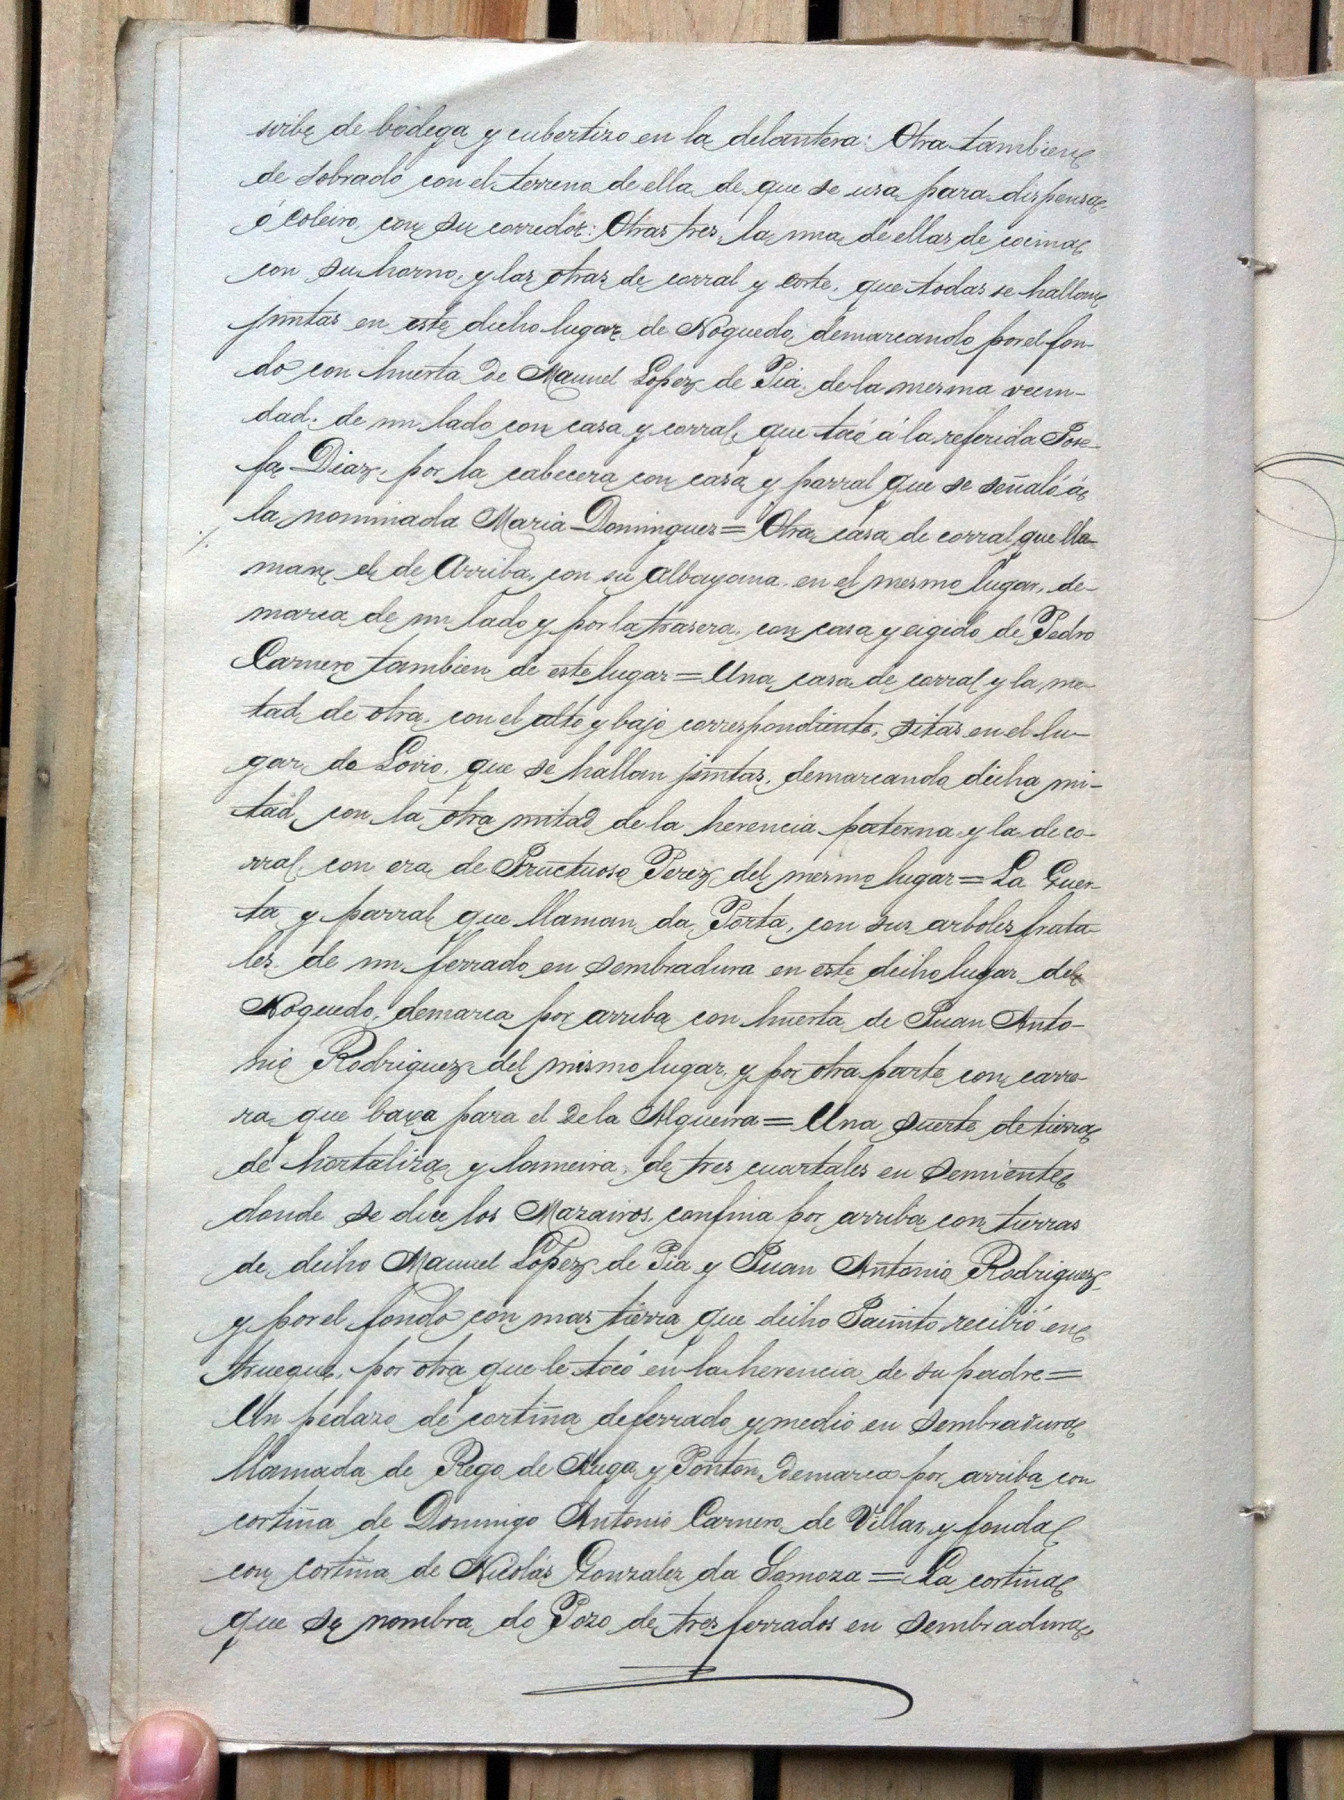 sirbe de bodega y cubertizo en la delantera: Otra tambien
de sobrado con el terreno de ella de que se usa para dispensa
ó Coleiro, con su corredor: Otras tres, la una de ellas de cocina
con su horno, y las otras de corral y corte, que todas se hallan
juntas en este dicho lugar de Noguedo, demarcando por el fon-
do con huerta de Manuel Lopez de Pia, de la mesma vecin-
dad: de un lado con casa y corral, que tocó á la referida Jose-
fa Diaz, por la cabecera con casa y parral que se señaló á
la nominada Maria Dominguez= Otra casa de corral que lla-
man el de Arriba, con su Albayana, en el mesmo lugar, de-
marca de un lado y por la trasera, con casa y eigido de Pedro
Carnero tambien de este lugar= Una casa de corral y la me-
tad de otra, con el alto y bajo correspondiente, sitas en el lu-
gar de Lovio, que se hallan juntas, demarcando dicha mi-
tad, con la otra mitad de la herencia paterna y la de co-
rral, con era de Fructuoso Perez del mesmo lugar= La Guer-
ta y parral que llaman da Porta, con sus arboles fruta-
les de un ferrado en sembradura en este dicho lugar de
Noguedo, demarca por arriba con huerta de Juan Anto-
nio Rodriguez del mismo lugar, y por otra parte con carre-
ra que baxa para el de la Algueira= Una suerte de tierra
de hortaliza y lameira, de tres cuartales en semiente
donde se dice los Mazairos, confina por arriba con tierras
de dicho Manuel Lopez de Pia y Juan Antonio Rodriguez
y por el fondo con mas tierra que dicho Jacinto recibió en
trueque, por otra que le tocó en la herencia de su padre=
Un pedazo de cortiña de ferrado y medio en sembradura
llamada de Rego de Auga y Ponton, demarca por arriba con
cortiña de Domingo Antonio Carnero de Villar, y fondal
con cortiña de Nicolás Gonzalez da Lamoza= La cortiña
que se nombra do Pozo de tres ferrados en sembradura